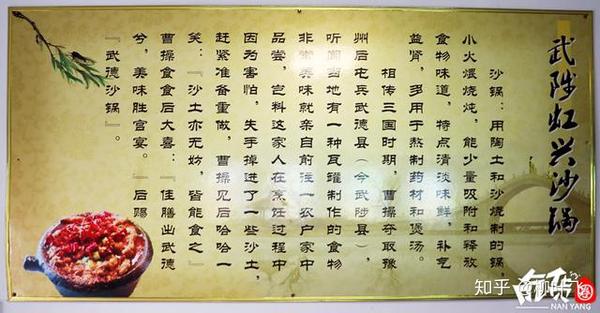 武陟虹兴沙锅
沙锅：用陶土和沙烧制的锅，
小火煨烧炖，能少量吸附和释放
食物味道，特点清淡味鲜，补气
益肾，多用于熬制药材和煲汤。
相传三国时期，曹操夺取豫
州后屯兵武德县（今武陟县），
听闻当地有一种瓦罐制作的食物
非常美味就亲自前往一农户家中
品尝，岂料这家人在烹饪过程中
因为害怕，失手掉进了一些沙土，
赶紧准备重做，曹操见后哈哈一
笑：『沙土亦无妨，皆能食之』
曹操食食后大喜：『佳膳出武德
兮，美味胜宫宴。』后赐
『武德沙锅』。
知乎
NAN YANG